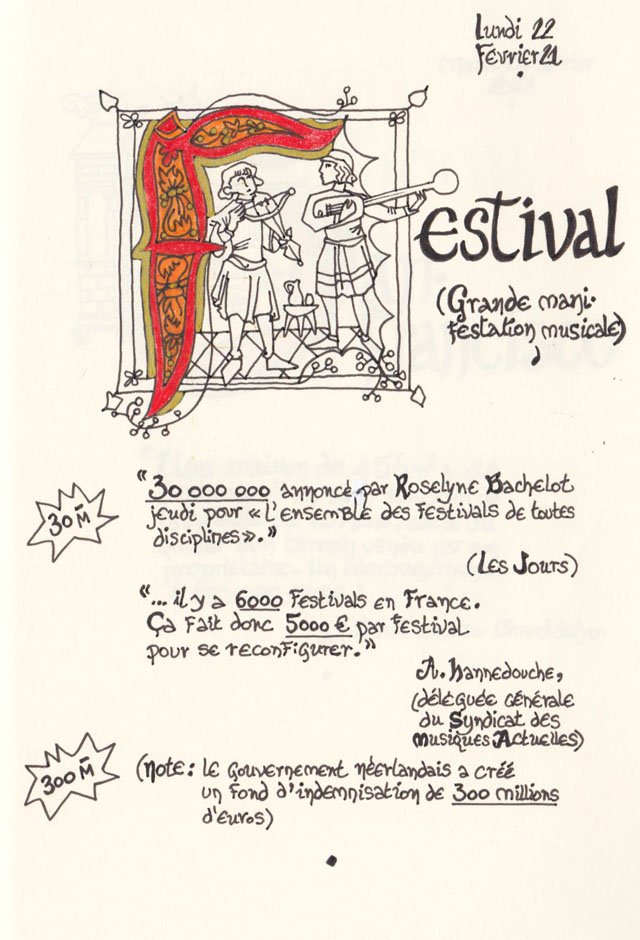 Lundi 22
Février 21
Festival
(Grande mani-
festation musicale)
30 M
“30 000 000 annoncé par Roselyne Bachelot
jeudi pour « l'ensemble des festivals de toutes
disciplines ». ”
(Les Jours)
“... il y a 6000 festivals en France.
Ça fait donc 5000 € par festival
pour se reconfigurer. ”
A. Hannedouche,
(déléguée générale
du Syndicat des
Musiques Actuelles)
300 M
(Note: le gouvernement néerlandais a créé
un fond d'indemnisation de 300 millions
d'euros)